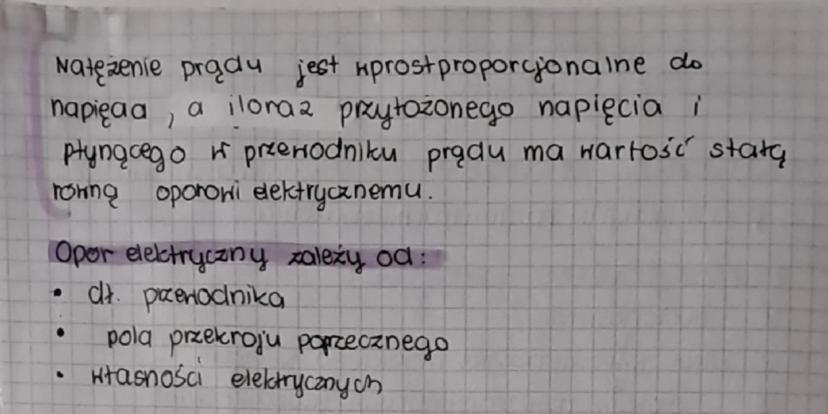 Natężenie prądu jest wprostproporcjonalne do
napięcia, a iloraz przyłożonego napięcia i
płynącego w przewodniku prądu ma wartość stałą
równą oporowi elektrycznemu.
Opór elektryczny zależy od:
• dł. przewodnika
• pola przekroju poprzecznego
• własności elektrycznych